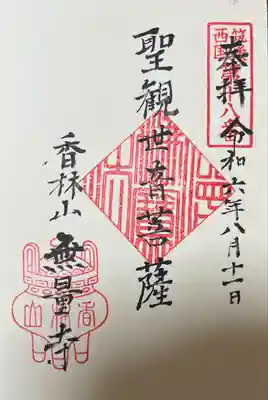 奉拝
令和六年八月十一日
聖観世音菩薩
香林山
無量寺